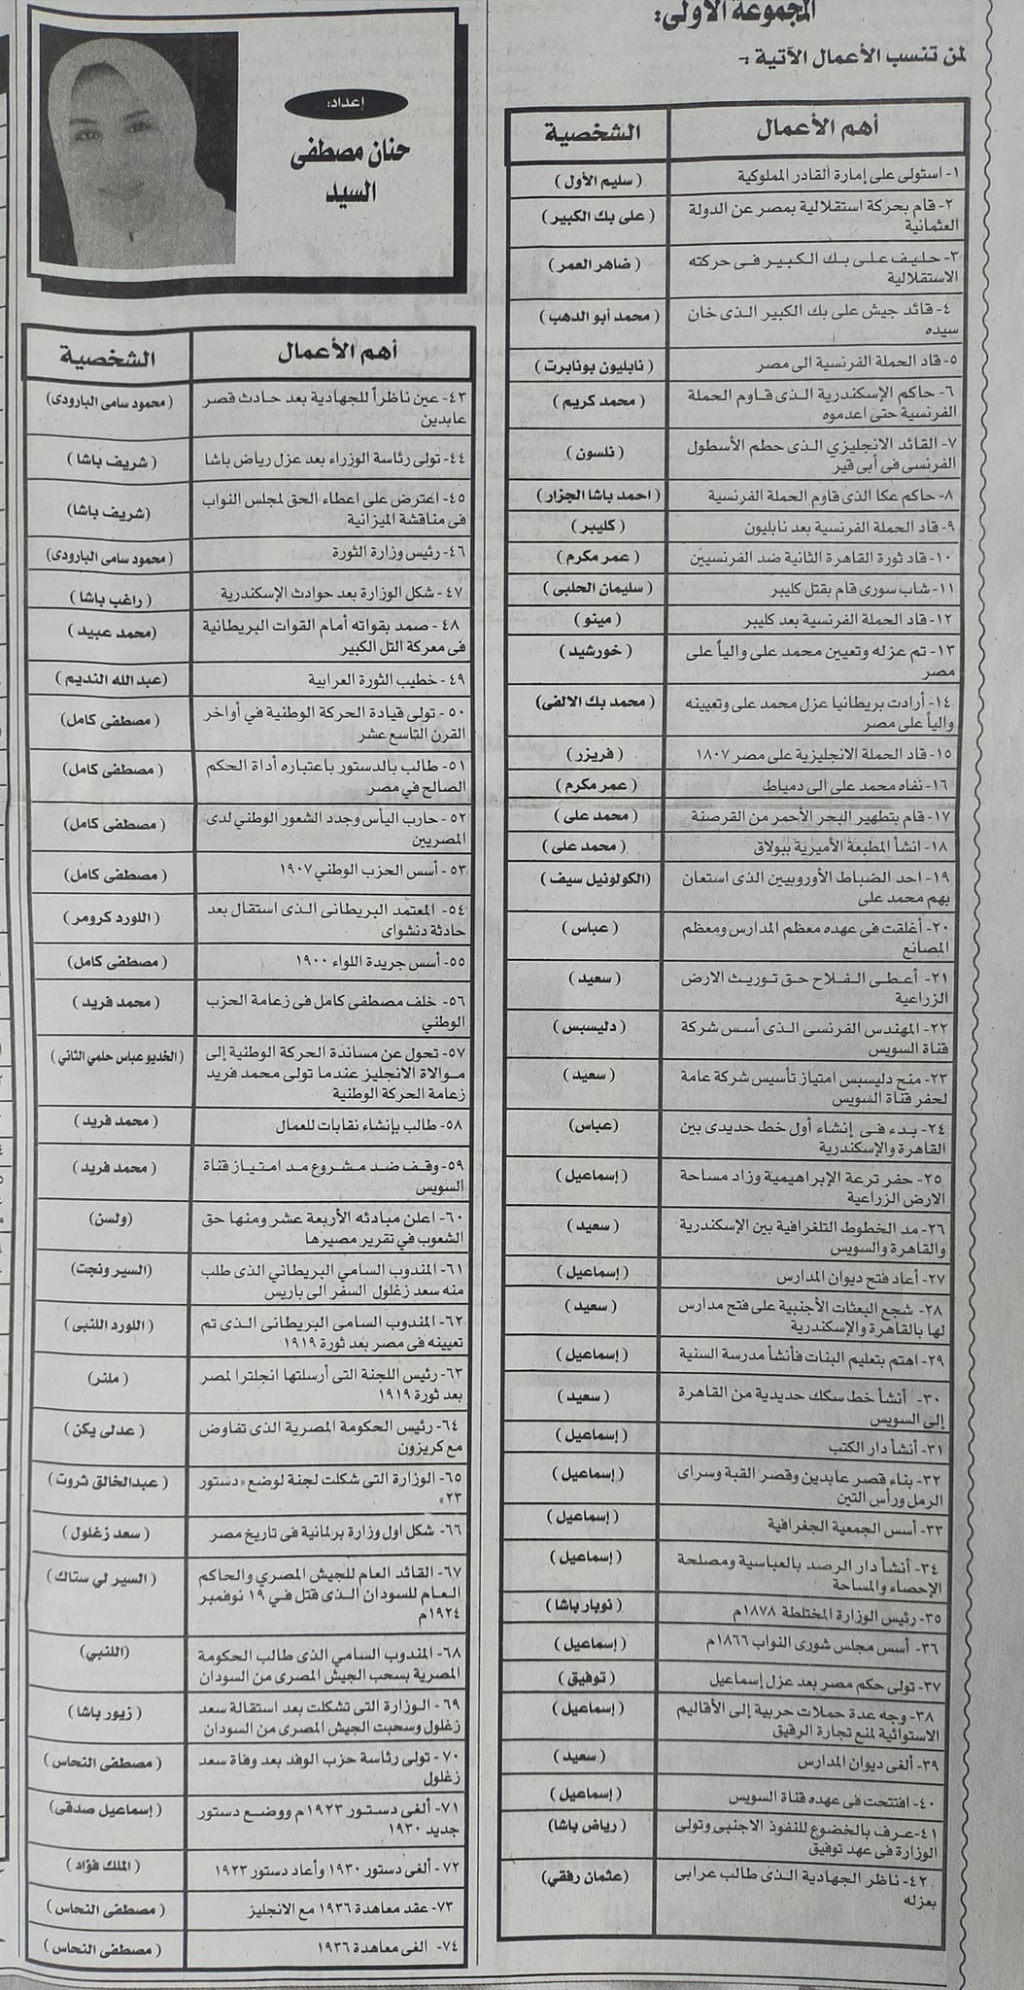 المجموعة الأولى:
لمن تنسب الأعمال الآتية :-
أهم الأعمال
الشخصية
١- استولى على إمارة القادر المملوكية
( سليم الأول )
٢- قام بحركة استقلالية بمصر عن الدولة
العثمانية
( على بك الكبير )
٣- حليف على بك الكبير فى حركته
الاستقلالية
( ضاهر العمر )
٤- قائد جيش على بك الكبير الذى خان
سيده
( محمد أبو الدهب )
٥- قاد الحملة الفرنسية الى مصر
( نابليون بونابرت )
٦- حاكم الإسكندرية الذى قاوم الحملة
الفرنسية حتى اعدموه
( محمد كريم )
٧- القائد الانجليزي الذى حطم الأسطول
الفرنسى فى أبى قير
( نلسون )
٨- حاكم عكا الذى قاوم الحملة الفرنسية
( احمد باشا الجزار )
٩- قاد الحملة الفرنسية بعد نابليون
( كليبر )
١٠- قاد ثورة القاهرة الثانية ضد الفرنسيين
( عمر مكرم )
١١- شاب سورى قام بقتل كليبر
( سليمان الحلبى )
١٢- قاد الحملة الفرنسية بعد كليبر
( مينو )
١٣- تم عزله وتعيين محمد على والياً على
مصر
( خورشيد )
١٤- أرادت بريطانيا عزل محمد على وتعيينه
والياً على مصر
( محمد بك الالفى )
١٥- قاد الحملة الانجليزية على مصر ١٨٠٧
( فريزر )
١٦- نفاه محمد على الى دمياط
( عمر مكرم )
١٧- قام بتطهير البحر الأحمر من القرصنة
( محمد على )
١٨- انشأ المطبعة الأميرية ببولاق
( محمد على )
١٩- احد الضباط الأوروبيين الذى استعان
بهم محمد على
(الكولونيل سيف )
٢٠- أغلقت فى عهده معظم المدارس ومعظم
المصانع
( عباس )
٢١- أعطى الفلاح حق توريث الارض
الزراعية
( سعيد )
٢٢- المهندس الفرنسى الذى أسس شركة
قناة السويس
( دليسبس )
٢٣- منح دليسبس امتياز تأسيس شركة عامة
لحفر قناة السويس
( سعيد )
٢٤- بدء فى إنشاء أول خط حديدى بين
القاهرة والإسكندرية
(عباس)
٢٥- حفر ترعة الإبراهيمية وزاد مساحة
الارض الزراعية
( إسماعيل )
٢٦- مد الخطوط التلغرافية بين الإسكندرية
والقاهرة والسويس
( سعيد )
٢٧- أعاد فتح ديوان المدارس
( إسماعيل )
٢٨- شجع البعثات الأجنبية على فتح مدارس
لها بالقاهرة والإسكندرية
( سعيد )
٢٩- اهتم بتعليم البنات فأنشأ مدرسة السنية
( إسماعيل )
٣٠- أنشأ خط سكك حديدية من القاهرة
إلى السويس
( سعيد )
٣١- أنشأ دار الكتب
( إسماعيل )
٣٢- بناء قصر عابدين وقصر القبة وسراى
الرمل ورأس التين
( إسماعيل )
٣٣- أسس الجمعية الجغرافية
( إسماعيل )
٣٤- أنشأ دار الرصد بالعباسية ومصلحة
الإحصاء والمساحة
( إسماعيل )
٣٥- رئيس الوزارة المختلطة ١٨٧٨م
( نوبار باشا )
٣٦- أسس مجلس شورى النواب ١٨٦٦م
( إسماعيل )
٣٧- تولى حكم مصر بعد عزل إسماعيل
( توفيق )
٣٨- وجه عدة حملات حربية إلى الأقاليم
الاستوائية لمنع تجارة الرقيق
( إسماعيل )
٣٩- ألغى ديوان المدارس
( سعيد )
٤٠- افتتحت فى عهده قناة السويس
( إسماعيل )
٤١- عرف بالخضوع للنفوذ الاجنبى وتولى
الوزارة فى عهد توفيق
( رياض باشا)
٤٢- ناظر الجهادية الذى طالب عرابى
بعزله
(عثمان رفقي)
إعداد:
حنان مصطفى
السيد
أهم الأعمال
الشخصية
٤٣- عين ناظراً للجهادية بعد حادث قصر
عابدين
(محمود سامى البارودى)
٤٤- تولى رئاسة الوزراء بعد عزل رياض باشا
( شريف باشا )
٤٥- اعترض على اعطاء الحق لمجلس النواب
فى مناقشة الميزانية
(شريف باشا)
٤٦- رئيس وزارة الثورة
(محمود سامى البارودى)
٤٧- شكل الوزارة بعد حوادث الإسكندرية
( راغب باشا )
٤٨- صمد بقواته أمام القوات البريطانية
فى معركة التل الكبير
(محمد عبيد )
٤٩- خطيب الثورة العرابية
(عبد الله النديم )
٥٠- تولى قيادة الحركة الوطنية في أواخر
القرن التاسع عشر
( مصطفى كامل )
٥١- طالب بالدستور باعتباره أداة الحكم
الصالح في مصر
( مصطفى كامل)
٥٢- حارب اليأس وجدد الشعور الوطني لدى
المصريين
( مصطفى كامل)
٥٣- أسس الحزب الوطني ١٩٠٧
( مصطفى كامل)
٥٤- المعتمد البريطانى الذى استقال بعد
حادثة دنشواى
( اللورد كرومر )
٥٥- أسس جريدة اللواء ١٩٠٠
( مصطفى كامل)
٥٦- خلف مصطفى كامل فى زعامة الحزب
الوطني
( محمد فريد )
٥٧- تحول عن مساندة الحركة الوطنية إلى
موالاة الانجليز عندما تولى محمد فريد
زعامة الحركة الوطنية
( الخديو عباس حلمي الثاني )
٥٨- طالب بإنشاء نقابات للعمال
( محمد فريد )
٥٩- وقف ضد مشروع مد امتياز قناة
السويس
( محمد فريد )
٦٠- اعلن مبادئه الأربعة عشر ومنها حق
الشعوب في تقرير مصيرها
(ولسن)
٦١- المندوب السامي البريطاني الذى طلب
منه سعد زغلول السفر الى باريس
(السير ونجت)
٦٢- المندوب السامى البريطانى الذى تم
تعيينه فى مصر بعد ثورة ١٩١٩
( اللورد اللنبى )
٦٣- رئيس اللجنة التى أرسلتها انجلترا لمصر
بعد ثورة ١٩١٩
( ملنر)
٦٤- رئيس الحكومة المصرية الذى تفاوض
مع كريزون
( عدلى يكن )
٦٥- الوزارة التى شكلت لجنة لوضع «دستور
٢٣»
( عبدالخالق ثروت )
٦٦- شكل اول وزارة برلمانية فى تاريخ مصر
( سعد زغلول )
٦٧- القائد العام للجيش المصري والحاكم
العام للسودان الذى قتل في ١٩ نوفمبر
١٩٢٤م
( السير لي ستاك )
٦٨- المندوب السامي الذى طالب الحكومة
المصرية بسحب الجيش المصرى من السودان
(اللنبي)
٦٩- الوزارة التى تشكلت بعد استقالة سعد
زغلول وسحبت الجيش المصرى من السودان
( زيور باشا )
٧٠- تولى رئاسة حزب الوفد بعد وفاة سعد
زغلول
( مصطفى النحاس )
٧١- ألغى دستور ١٩٢٣م ووضع دستور
جديد ١٩٣٠
( إسماعيل صدقى)
٧٢- ألغى دستور ١٩٣٠ وأعاد دستور ١٩٢٣
( الملك فؤاد )
٧٣- عقد معاهدة ١٩٣٦ مع الانجليز
( مصطفى النحاس )
٧٤- الغى معاهدة ١٩٣٦
( مصطفى النحاس )